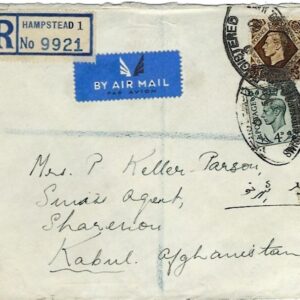 HAMPSTEAD 1
R No 9921
BY AIR MAIL
PAR AVION
REGISTERED
Mrs. P. Keller-Parson,
Swiss Agent,
Kabul. Afghanistan